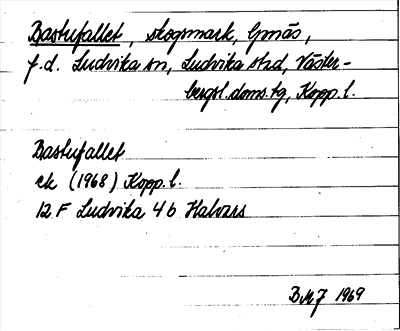 Bastufallet, skogsmark, Gonäs,
f.d. Ludvika sn, Ludvika stad, Väster-
bergsl. doms. tg, Kopp. l.
Bastufallet
ek (1968) Kopp. l.
12 F Ludvika 4 b Halvars
BMJ 1969